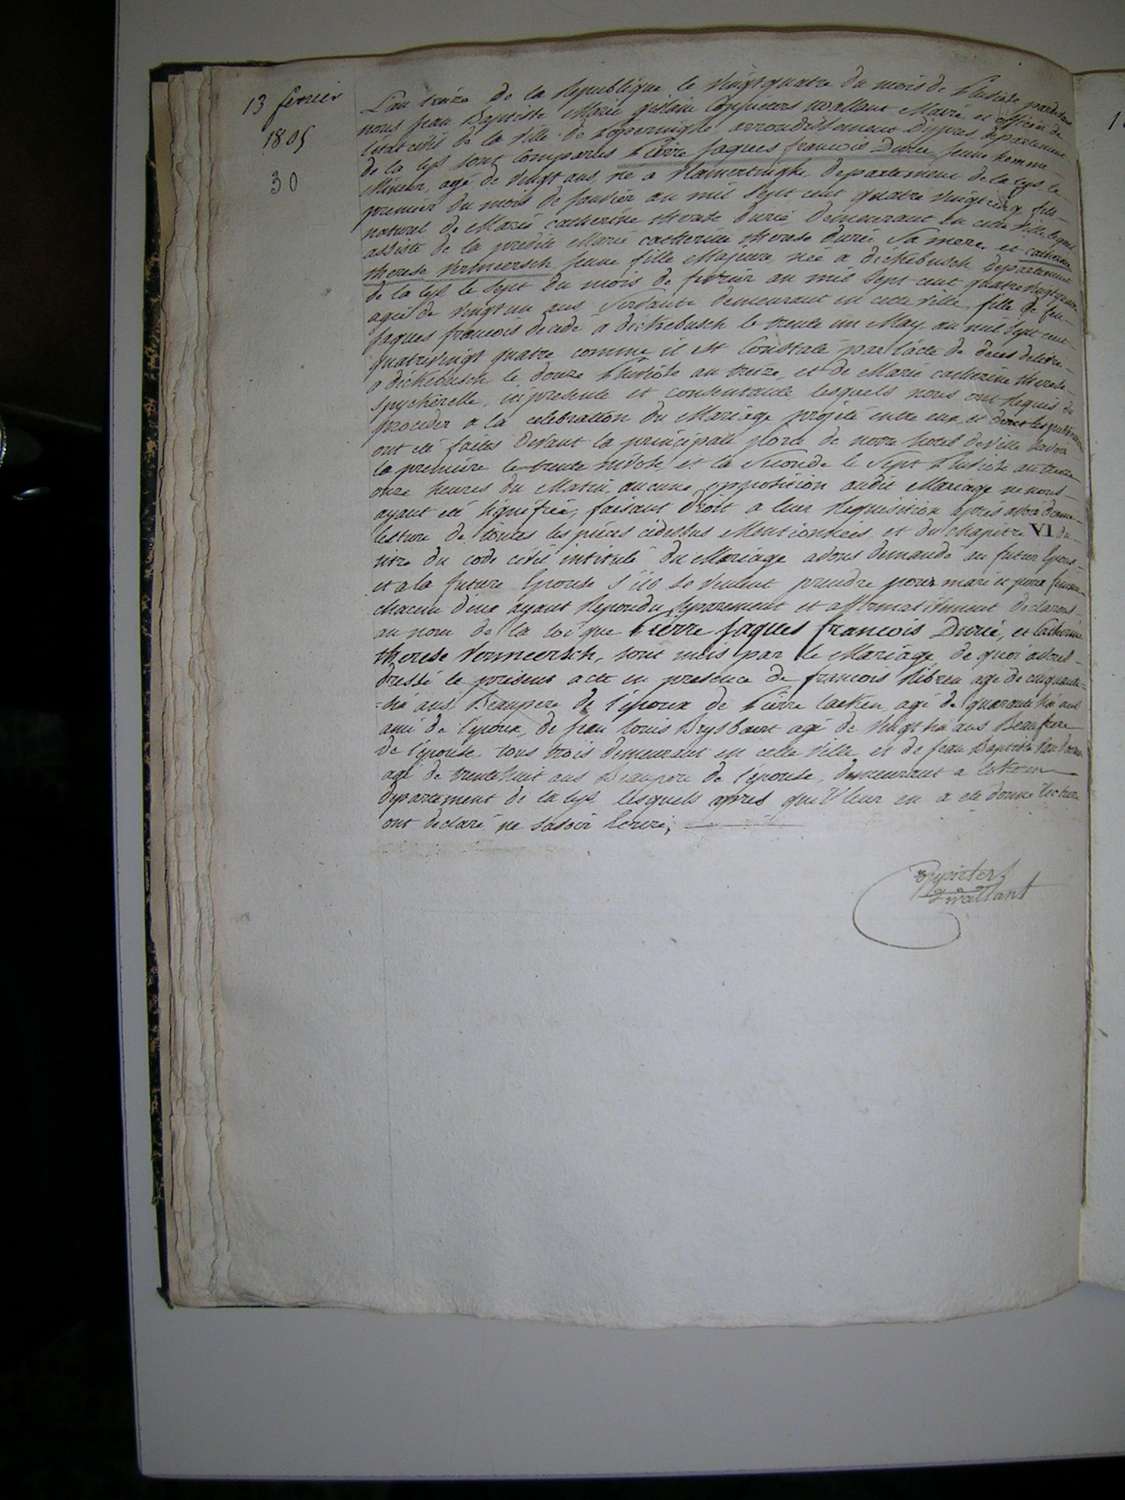 13 fevrier
1805
30
L'an treize de la Republique le vingtquatre du mois de Pluviôse pardevant
nous Jean Baptiste Marie Guslain Depueters wallant Maire et officier de
l'etat civil de la ville de Poperinghe arrondissement d'ypres departement
de la Lys sont comparus Pierre Jaques francois Durié Jeune homme
Mineur, agé de vingt ans né a Vlamertinghe departement de la Lys le
premier du mois de Janvier an mil sept cent quatre vingt cinq fils
naturel de Marie catherine therese durié demeurant en cette ville lequel
assisté de la predite Marie catherine therese durié sa mere et catherine
therese Vermeersch Jeune fille Majeure née a dickebusch departement
de la Lys le sept du mois de fevrier an mil sept cent quatre vingt quatre
agée de vingt un ans servante demeurant en cette ville fille de feu
Jaques francois decedé a dickebusch le trente un May an mil sept cent
quatrevingt quatre comme il est constaté par l'acte de deces delivré
a dickebusch le douze Pluviôse an treize, et de Marie catherine therese
Spycherelle, ici presente et consentante lesquels nous ont requis de
proceder a la celebration du Mariage projeté entre eux, et dont les publications
ont été faites devant la principale porte de notre hotel de ville savoir
la premiere le trente nivose et la seconde le sept Pluviôse an treize
onze heures du Matin, aucune opposition audit Mariage ne nous
ayant été signifiée, faisant droit a leur requisition apres avoir donné
lecture de toutes les pièces cidessus Mentionnées et du chapitre VI du
titre du code civil intitulé du Mariage avons demandé au futur Epoux
et a la future Epouse s'ils se veulent prendre pour mari et pour femme
chacun d'eux ayant repondu separement et affirmativement declarons
au nom de la loi que Pierre Jaques francois Durié, et Catherine
therese Vermeersch, sont unis par le Mariage, de quoi avons
dressé le present acte en presence de francois agé de cinquante
six ans Beaupere de l'époux de Pierre agé de quarante six ans
ami de l'époux, de Jean Louis agé de vingt six ans Beaufrere
de l'épouse, tous trois demeurant en cette ville et de Jean Baptiste
agé de trentehuit ans Beaupere de l'épouse, demeurant a
departement de la Lys, lesquels apres qu'il leur en a eté donné lecture
ont declaré ne savoir Ecrire;
Depuieters
wallant